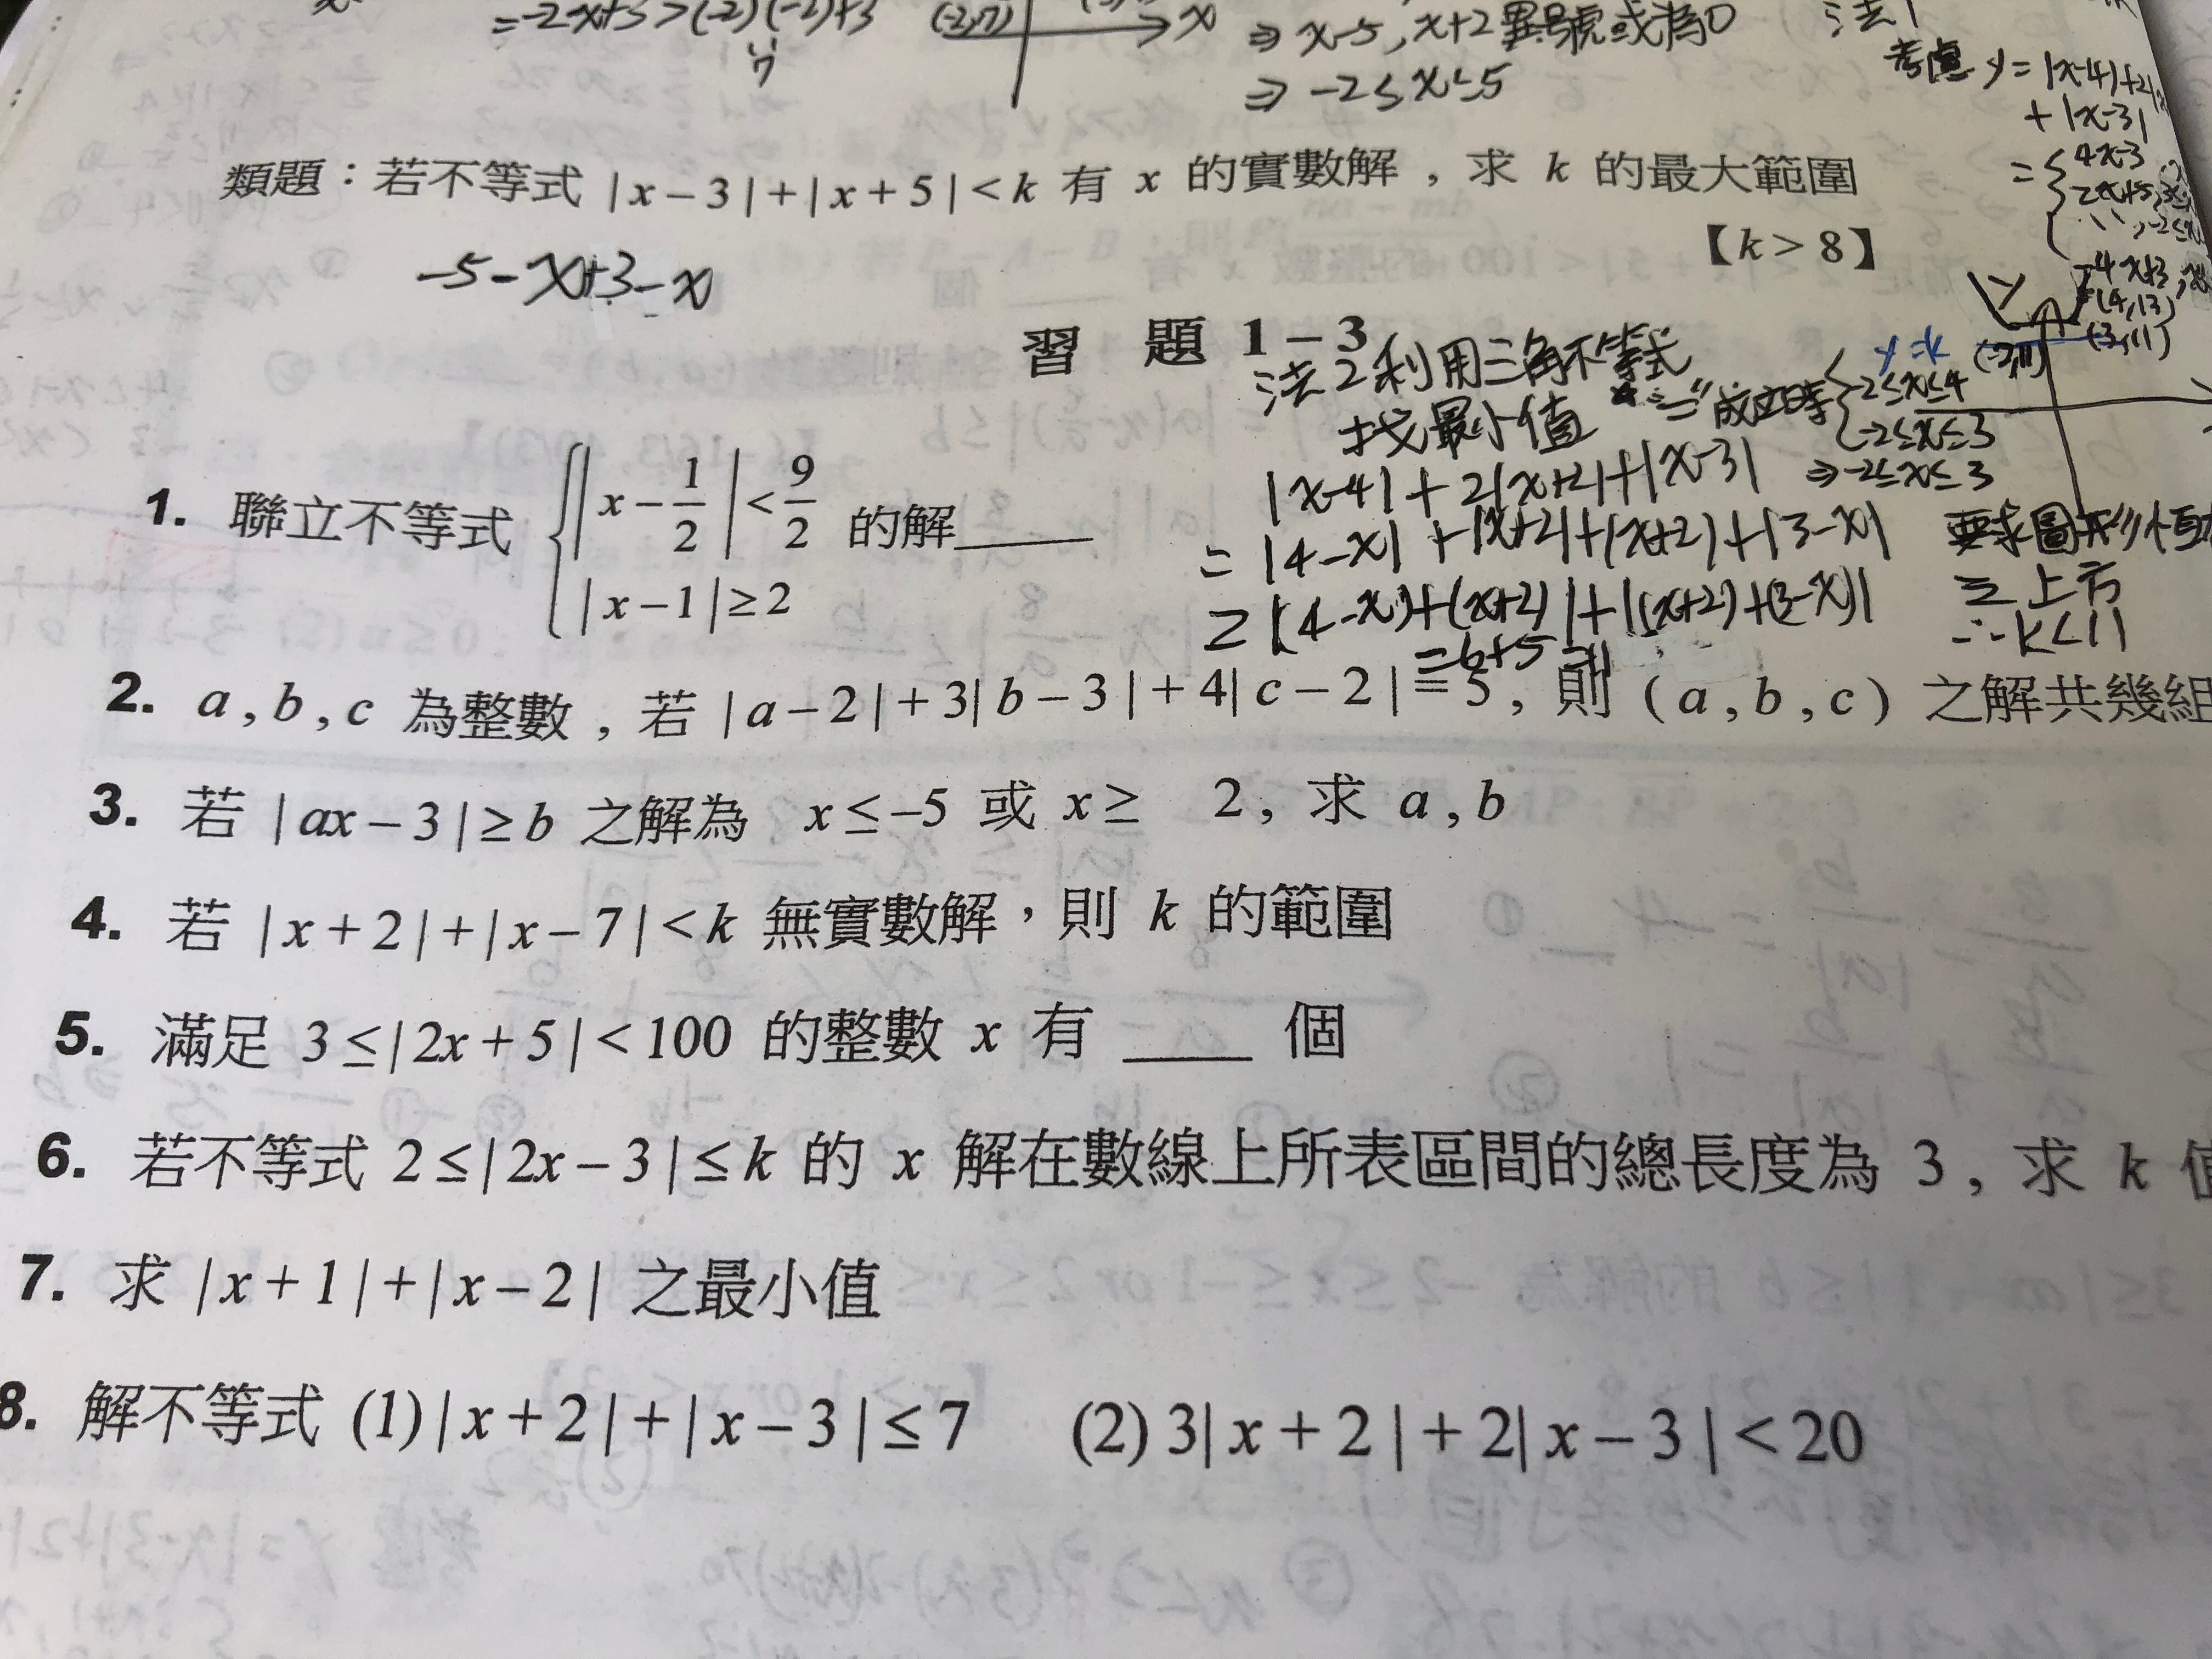 =-2x+3>(-2)(-2)+3
7
(-2,7)
x
⇒ x-5, x+2異號或為0
⇒ -2≤x≤5
法1
考慮 y=|x-4|+2|
+|x-3|
= { 4x-3
類題：若不等式 |x-3|+|x+5|<k 有 x 的實數解，求 k 的最大範圍
【k>8】
-5-x+3-x
-4x+3
(4,13)
(3,11)
(-2,11)
y=k
習 題 1-3
法2 利用三角不等式
找最小值 "=" 成立時 { -2≤x≤4
-2≤x≤3
⇒ -2≤x≤3
|x-4|+2|x+2|+|x-3|
= |4-x|+|x+2|+|x+2|+|3-x|
≥ |(4-x)+(x+2)|+|(x+2)+(3-x)|
=6+5=11
要求圖形恒在
上方
∴k<11
1. 聯立不等式 { |x-1/2|<9/2 的解____
|x-1|≥2
2. a,b,c 為整數，若 |a-2|+3|b-3|+4|c-2|=5，則 (a,b,c) 之解共幾組
3. 若 |ax-3|≥b 之解為 x≤-5 或 x≥ 2，求 a,b
4. 若 |x+2|+|x-7|<k 無實數解，則 k 的範圍
5. 滿足 3≤|2x+5|<100 的整數 x 有 ____ 個
6. 若不等式 2≤|2x-3|≤k 的 x 解在數線上所表區間的總長度為 3，求 k 值
7. 求 |x+1|+|x-2| 之最小值
8. 解不等式 (1)|x+2|+|x-3|≤7 (2)3|x+2|+2|x-3|<20